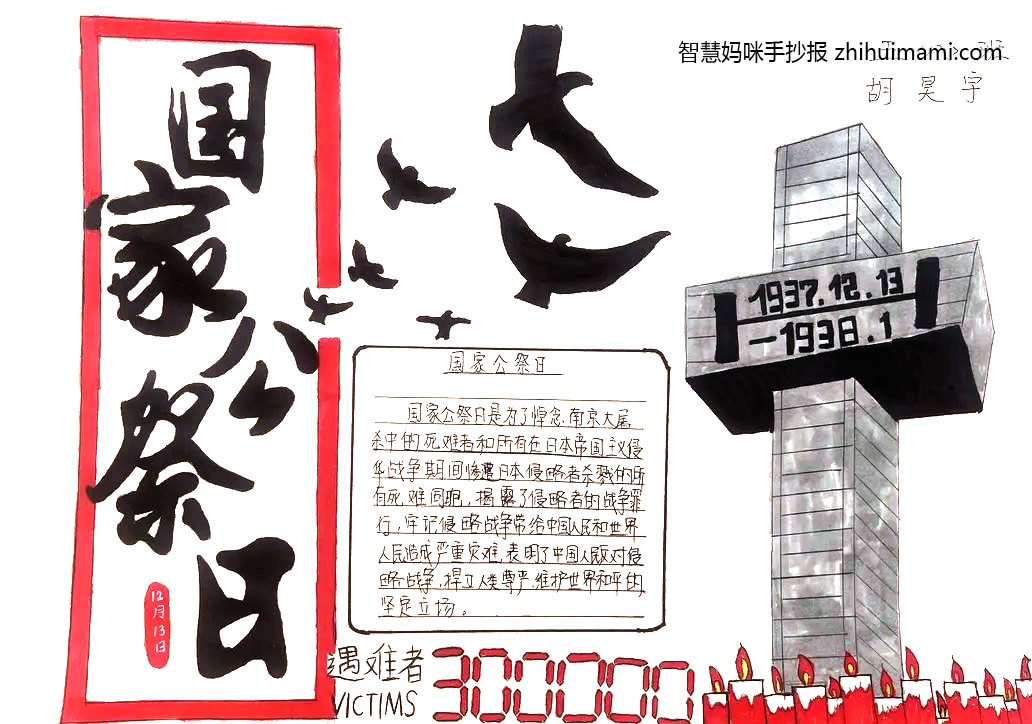 国家公祭日
12月13日
智慧妈咪手抄报 zhihuimami.com
班
胡昊宇
1937.12.13
—1938.1
国家公祭日
国家公祭日是为了悼念南京大屠
杀中的死难者和所有在日本帝国主议侵
华战争期间惨遭日本侵略者杀戮的所
有死难同胞，揭露了侵略者的战争罪
行，牢记侵略战争带给中国人民和世界
人民造成严重灾难，表明了中国人民反对侵
略战争，捍卫人类尊严，维护世界和平的
坚定立场。
遇难者
VICTIMS
300000